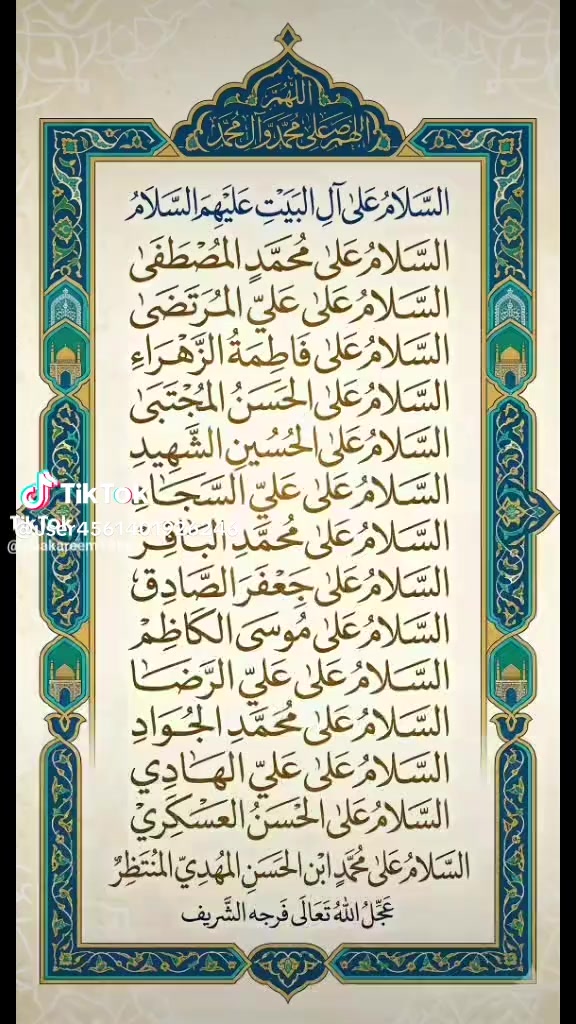 اللّٰهُمَّ
اللهم صل على محمد وآل محمد
السَّلَامُ عَلىٰ آلِ البَيْتِ عَلَيْهِمَ السَّلَامُ
السَّلَامُ عَلىٰ مُحَمَّدٍ المُصْطَفَىٰ
السَّلَامُ عَلىٰ عَليِّ المُرْتَضَىٰ
السَّلَامُ عَلىٰ فَاطِمَةُ الزَّهْرَاءِ
السَّلَامُ عَلىٰ الحَسَنُ المُجْتَبَىٰ
السَّلَامُ عَلىٰ الحُسُيْنِ الشَّهِيدِ
السَّلَامُ عَلىٰ عَليِّ السَّجَادِ
TikTok
السَّلَامُ عَلىٰ مُحَمَّدِ البَاقِرْ
TikTok
السَّلَامُ عَلىٰ جَعْفَرَ الصَّادِقْ
السَّلَامُ عَلىٰ مُوسَى الكَاظِمْ
السَّلَامُ عَلىٰ عَليِّ الرَّضَا
السَّلَامُ عَلىٰ مُحَمَّدِ الجُوَادِ
السَّلَامُ عَلىٰ عَليِّ الهَادِي
السَّلَامُ عَلىٰ الحْسَنُ العَسْكَرِيْ
السَّلَامُ عَلىٰ مُحَمَّدٍ ابْنِ الحَسَنِ المَهْدِيّ المُنْتَظِرْ
عَجِّلُ اللّٰهُ تَعَالَى فَرجه الشَّريف